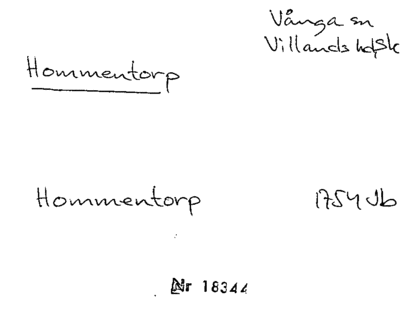 Vånga sn
Villands hd Sk
Hommentorp
Hommentorp 1754 Jb
Nr 18344